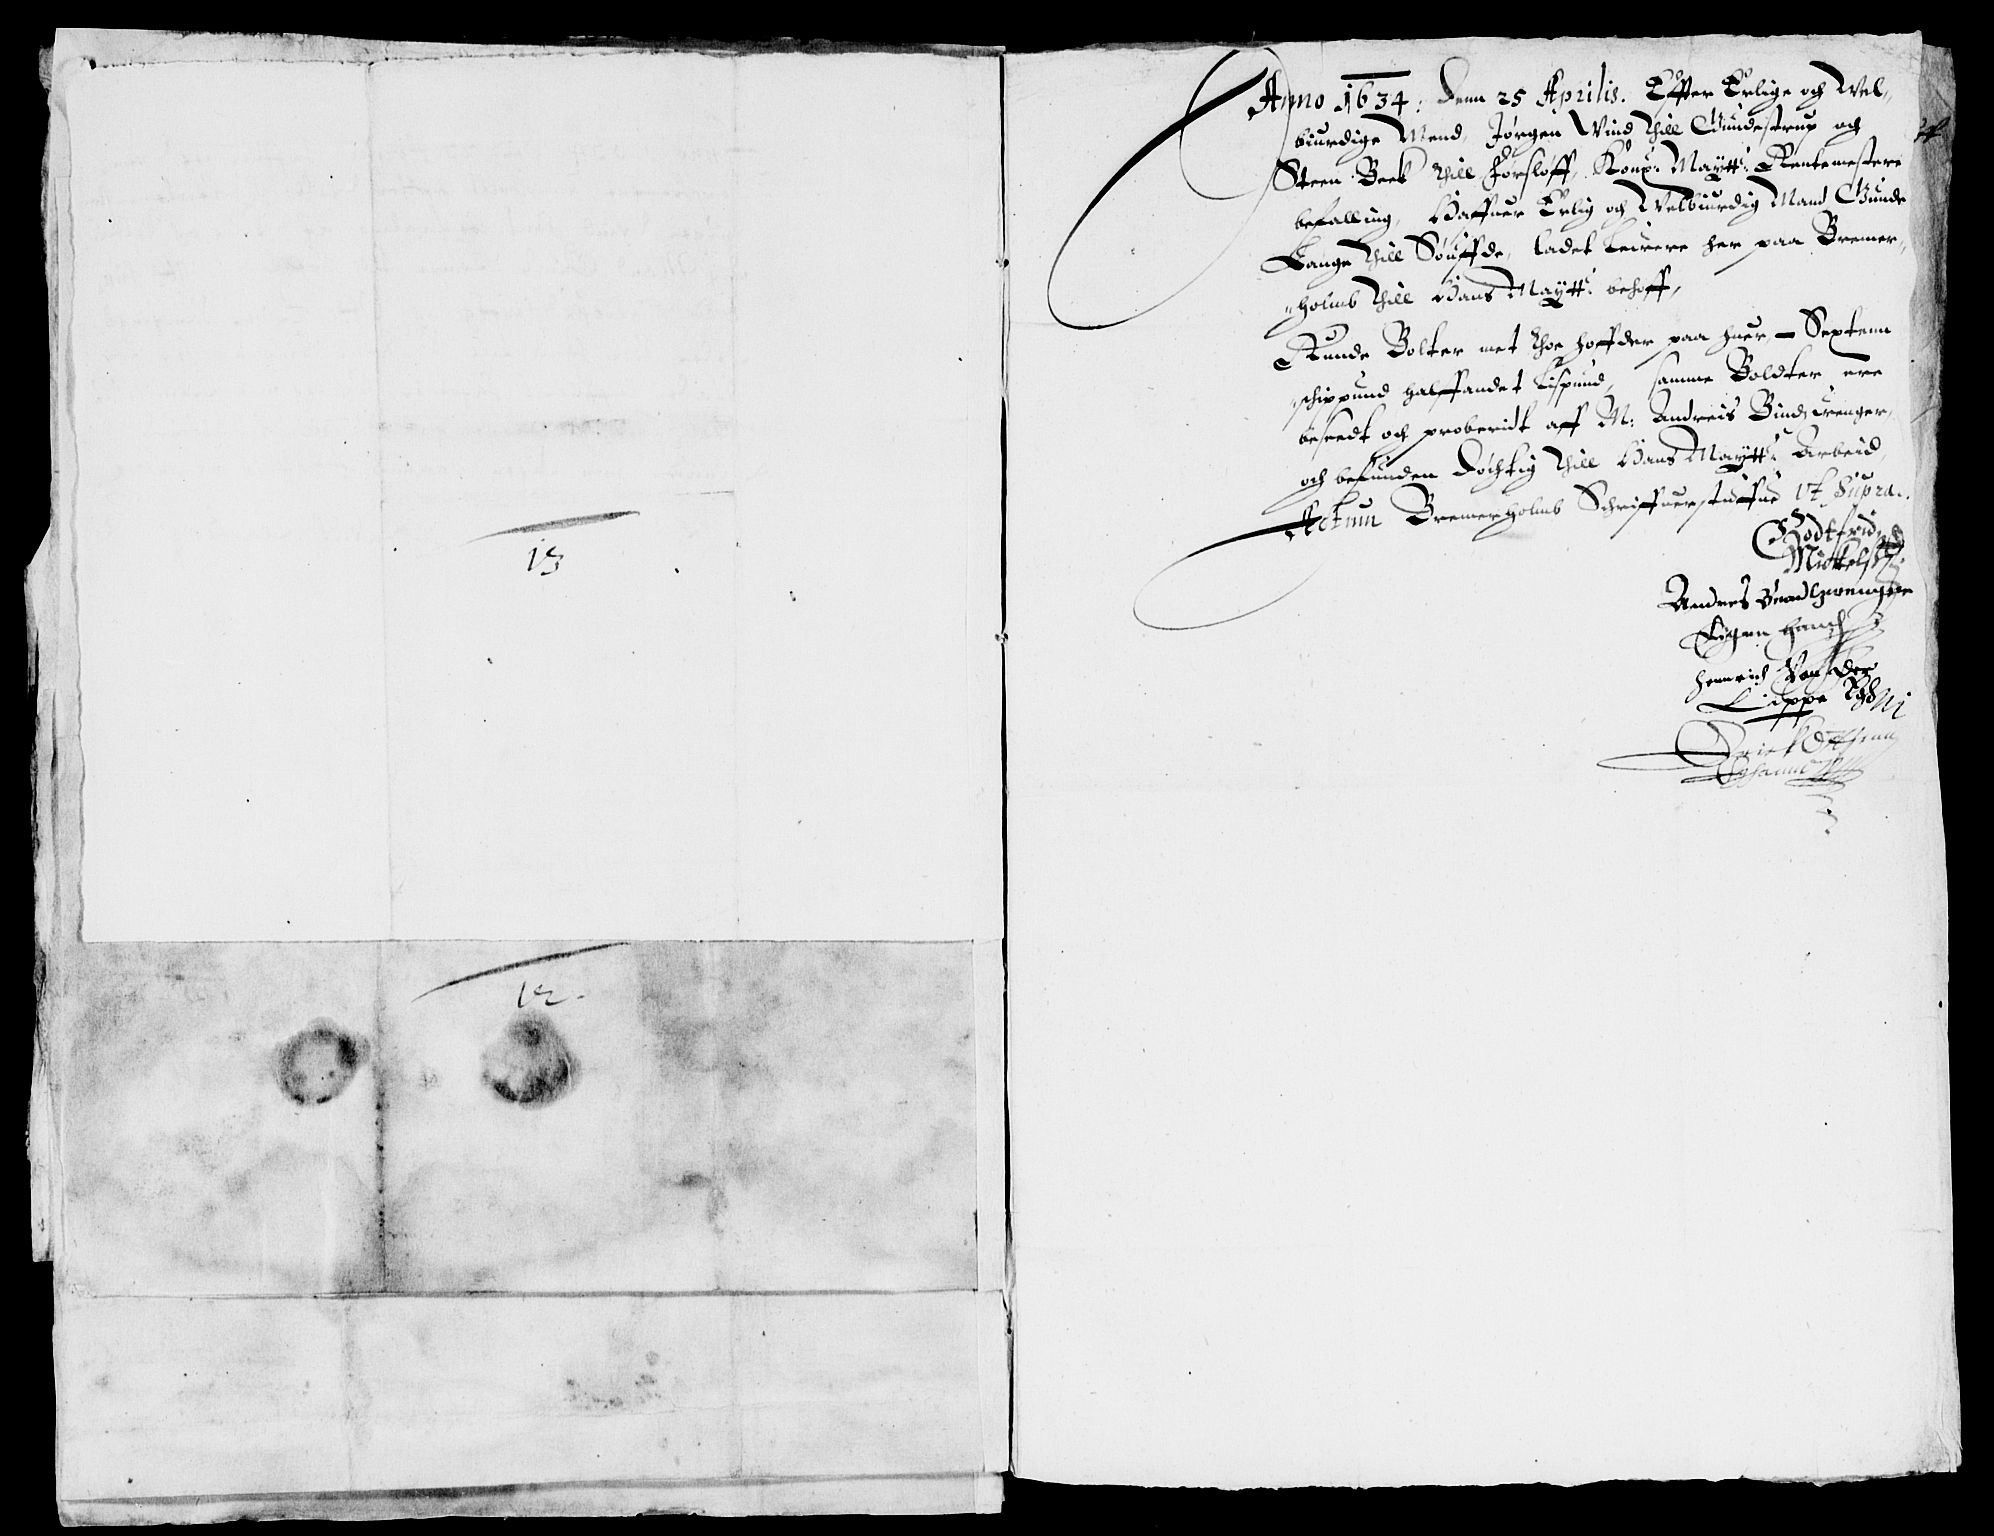 13
12.
Anno 1634: Denn 25 Aprilis. Effter Erlige och Wel„
biurdige Mend, Jørgen Wind thill Gundestrup och
Steen Beck thill Førsloff, Kong: Maytt: Rentemestere
befalling, Haffuer Erlig och Welbiurdig Mand Gunde
Lange thill Søuffde, ladet leuere her paa Bremer„
„holmb thill Hans Maytt: behoff,
Runde Bolter met thoe hoffder paa huer, - Septenn
schippund halffandet Lispund, samme Boldter ere
beseedt och proberidt aff M: Andreis Bindzuenger,
och befunden døchtig thill Hans Maytt: Arbeid,
Actum Bremerholmb Schriffuerstuffue Ut Supra.
Godtfrid
Mickelsen
Andres
Eigen Hand
Henrich Von der
Lippe